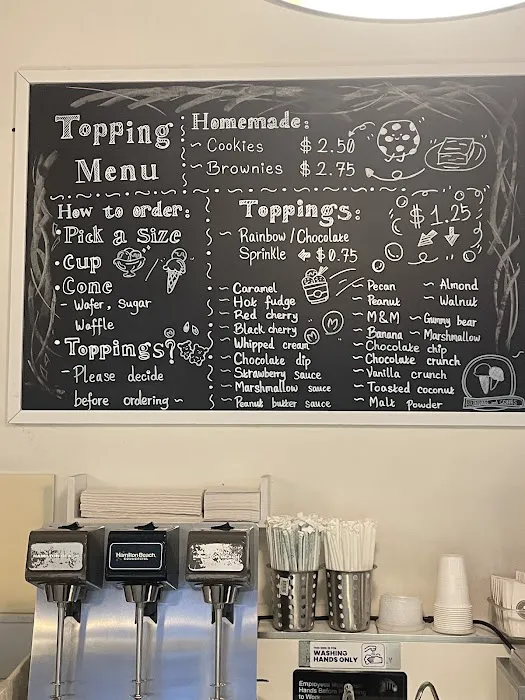 Topping
Menu
Homemade:
~ Cookies $ 2.50
~ Brownies $ 2.75
How to order:
• Pick a size
• Cup
• Cone
~ Wafer, Sugar
Waffle
• Toppings?
~ Please decide
before ordering ~
Toppings:
$ 1.25
~ Rainbow / Chocolate
Sprinkle $ 0.75
~ Caramel
~ Hot fudge
~ Red cherry
~ Black cherry
~ Whipped cream
~ Chocolate dip
~ Strawberry sauce
~ Marshmallow sauce
~ Peanut butter sauce
~ Pecan
~ Peanut
~ M&M
~ Banana
~ Chocolate chip
~ Chocolate crunch
~ Vanilla crunch
~ Toasted coconut
~ Malt Powder
~ Almond
~ Walnut
~ Gummy bear
~ Marshmallow
M
M
Hamilton Beach
COMMERCIAL
WASHING
HANDS ONLY
Employees Must
Wash Hands Before